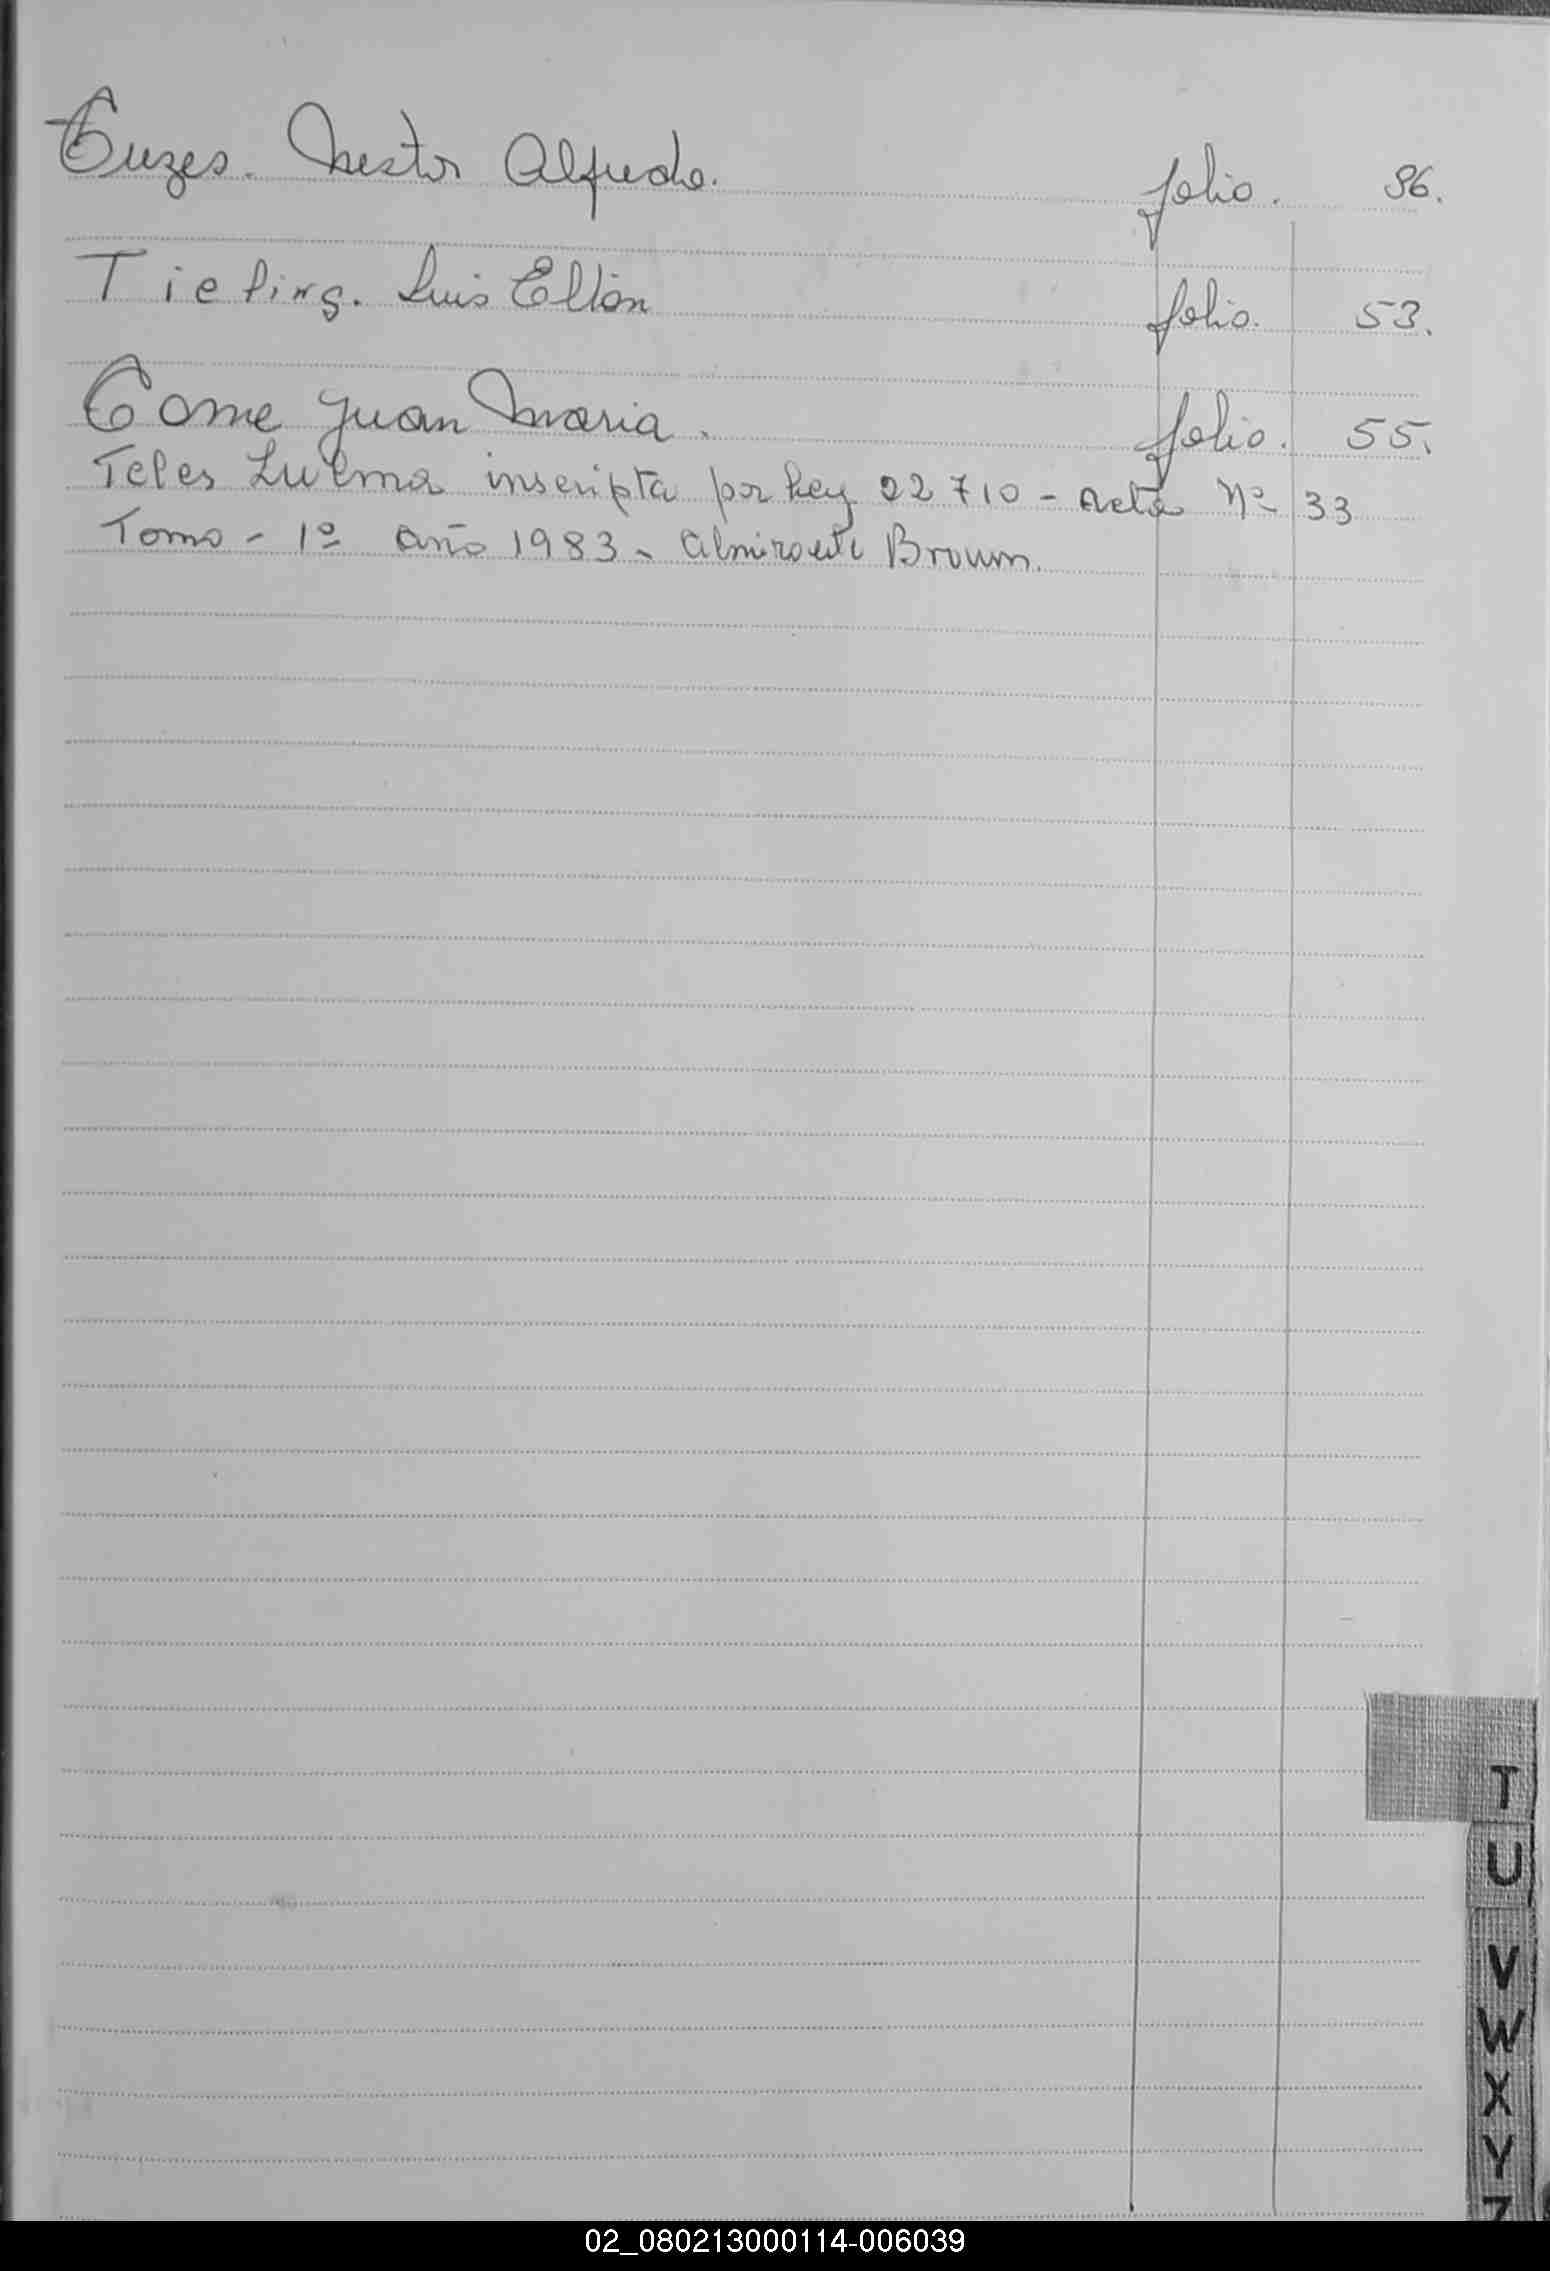 Tuzes. Nestor Alfredo. folio. 36.
Tieling. Luis Ellian folio. 53.
Tome Juan Maria. folio. 55.
Teles Zulma inscripta por Ley 22710 - Acta Nº 33
Tomo - 1º año 1983 - Almirante Brown.
T
U
V
W
X
Y
Z
02_080213000114-006039